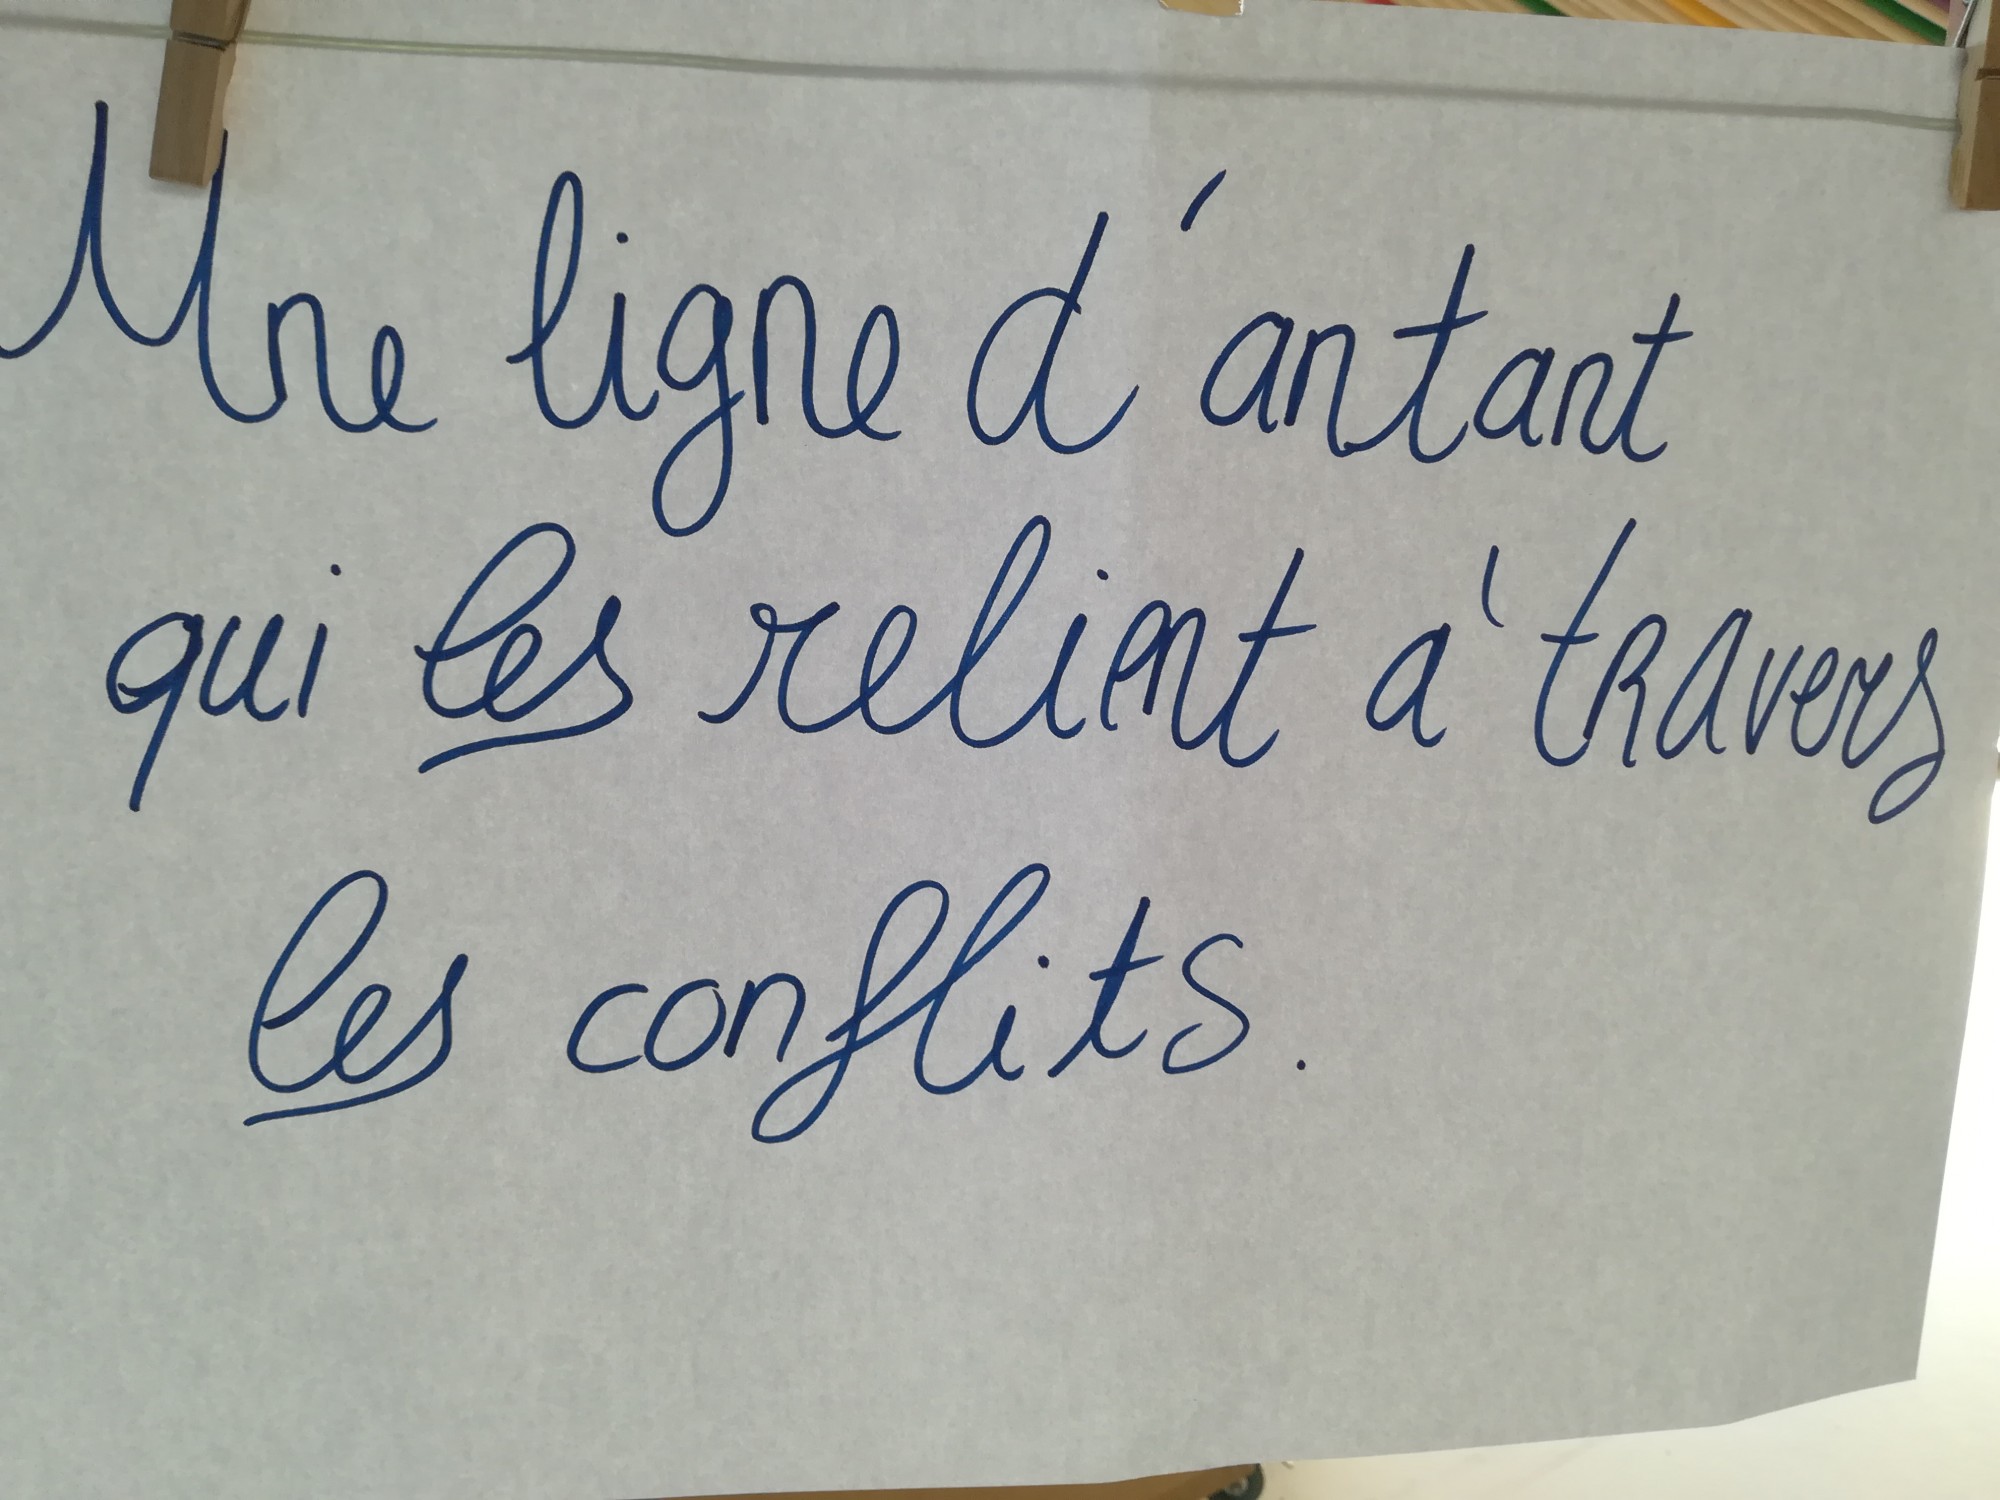 Une ligne d'antant
qui les relient à travers
les conflits.